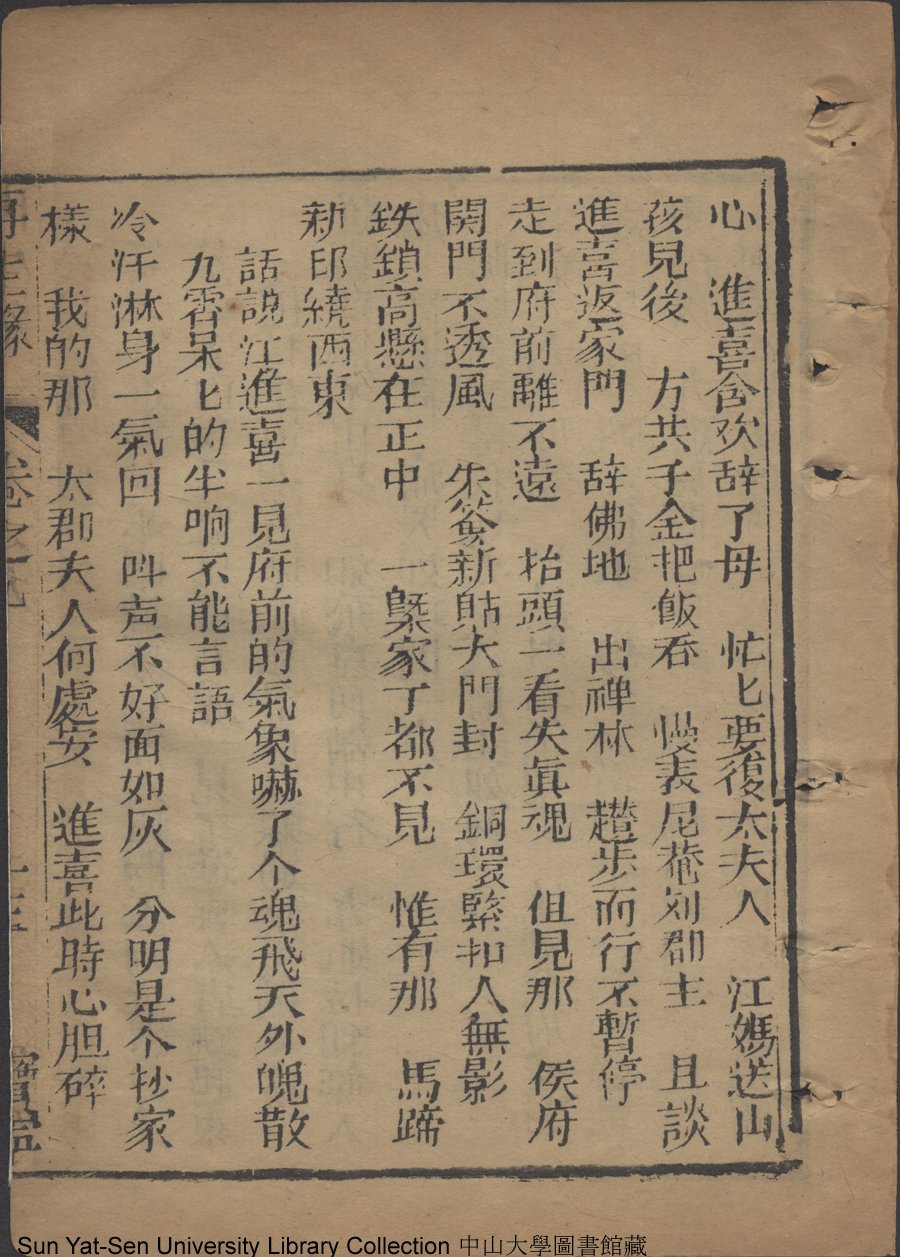 心　進喜含欢辞了母　忙匕要復太夫人　江媽送山
孩見後　方共子金把飯吞　慢表尼菴刘郡主　且談
進喜返家門　辞佛地　出禅林　趲步而行不暫停
走到府前離不遠　抬頭一看失眞魂　但見那　侯府
開門不透風　朱簽新貼大門封　銅環緊扣人無影
鉄鎖高懸在正中　一槩家丁都不見　惟有那　馬蹄
新印繞西東
話說江進喜一見府前的氣象嚇了个魂飛天外魄散
九霄呆匕的半响不能言語
冷汗淋身一氣回　叫声不好面如灰　分明是个抄家
樣　我的那　太郡夫人何處安　進喜此時心胆碎
再生緣　卷之　十三
Sun Yat-Sen University Library Collection 中山大學圖書館藏